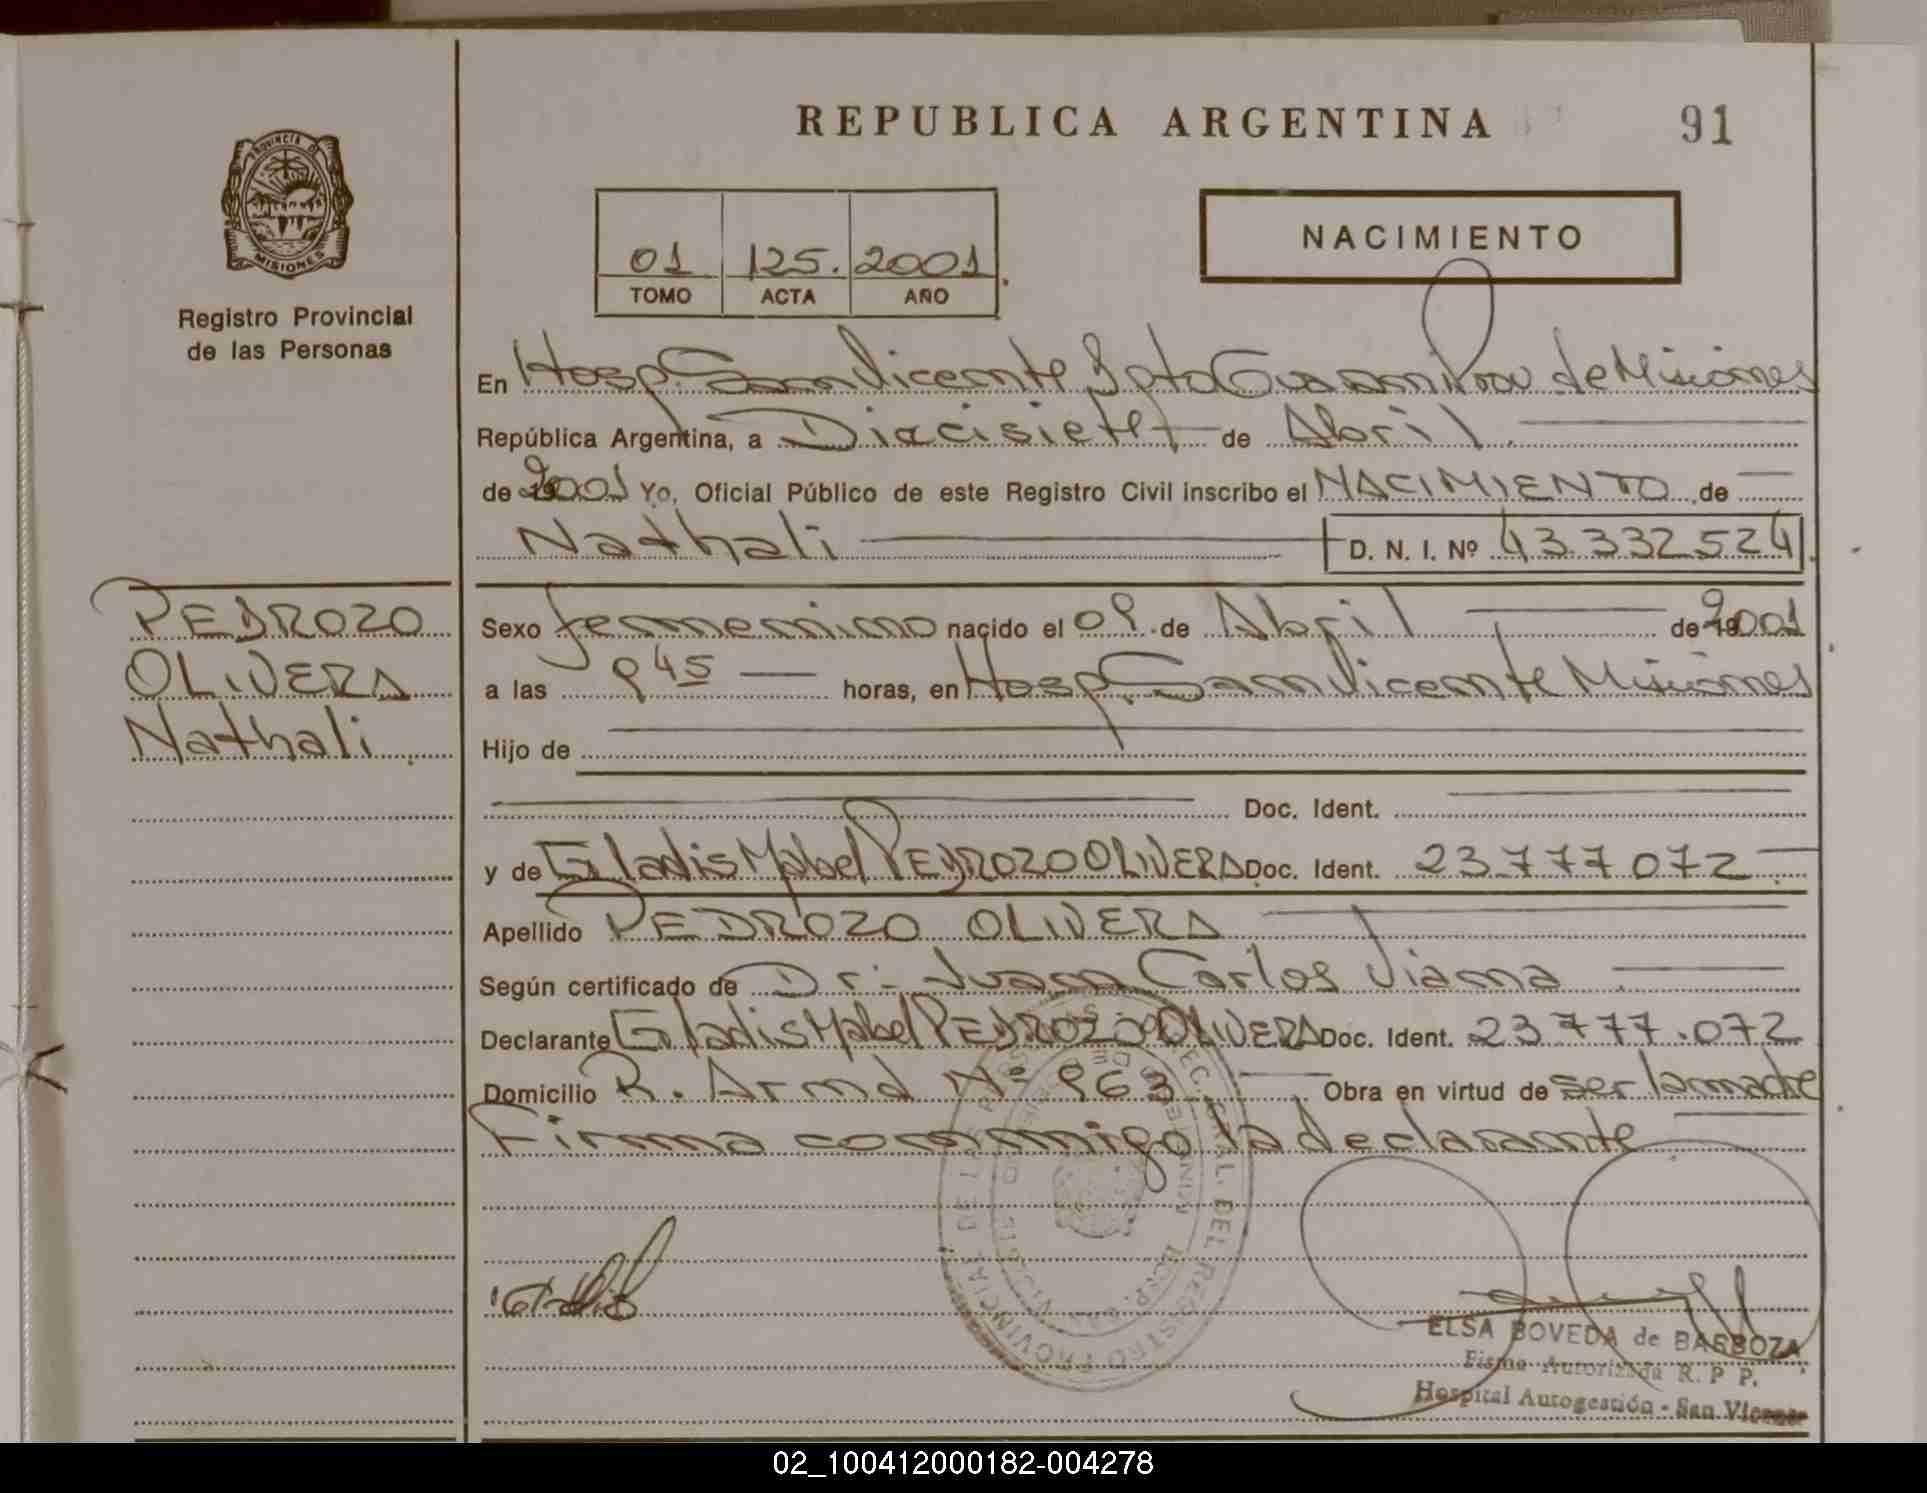 REPUBLICA ARGENTINA
91
PROVINCIA DE
MISIONES
Registro Provincial
de las Personas
01 125. 2001
TOMO ACTA AÑO
NACIMIENTO
En Hosp. San Vicente Dpto Guarani Prov de Misiones
República Argentina, a Diecisiete de Abril
de 2001 Yo, Oficial Público de este Registro Civil inscribo el NACIMIENTO de
Nathali D. N. I. Nº 43.332.524
PEDROZO
OLIVERA
Nathali
Sexo femenino nacido el 09 de Abril de 2001
a las 9 45 horas, en Hosp. San Vicente Misiones
Hijo de
Doc. Ident.
y de Gladis Mabel PEDROZO OLIVERA Doc. Ident. 23.777.072
Apellido PEDROZO OLIVERA
Según certificado de Dr. Juan Carlos Viana
Declarante Gladis Mabel PEDROZO OLIVERA Doc. Ident. 23.777.072
Domicilio R. Arma Nº 963 Obra en virtud de ser la madre
Firma conmigo la declarante
ELSA BOVEDA de BARBOZA
Firma Autorizada R. P P.
Hospital Autogestión - San Vicente
02_100412000182-004278